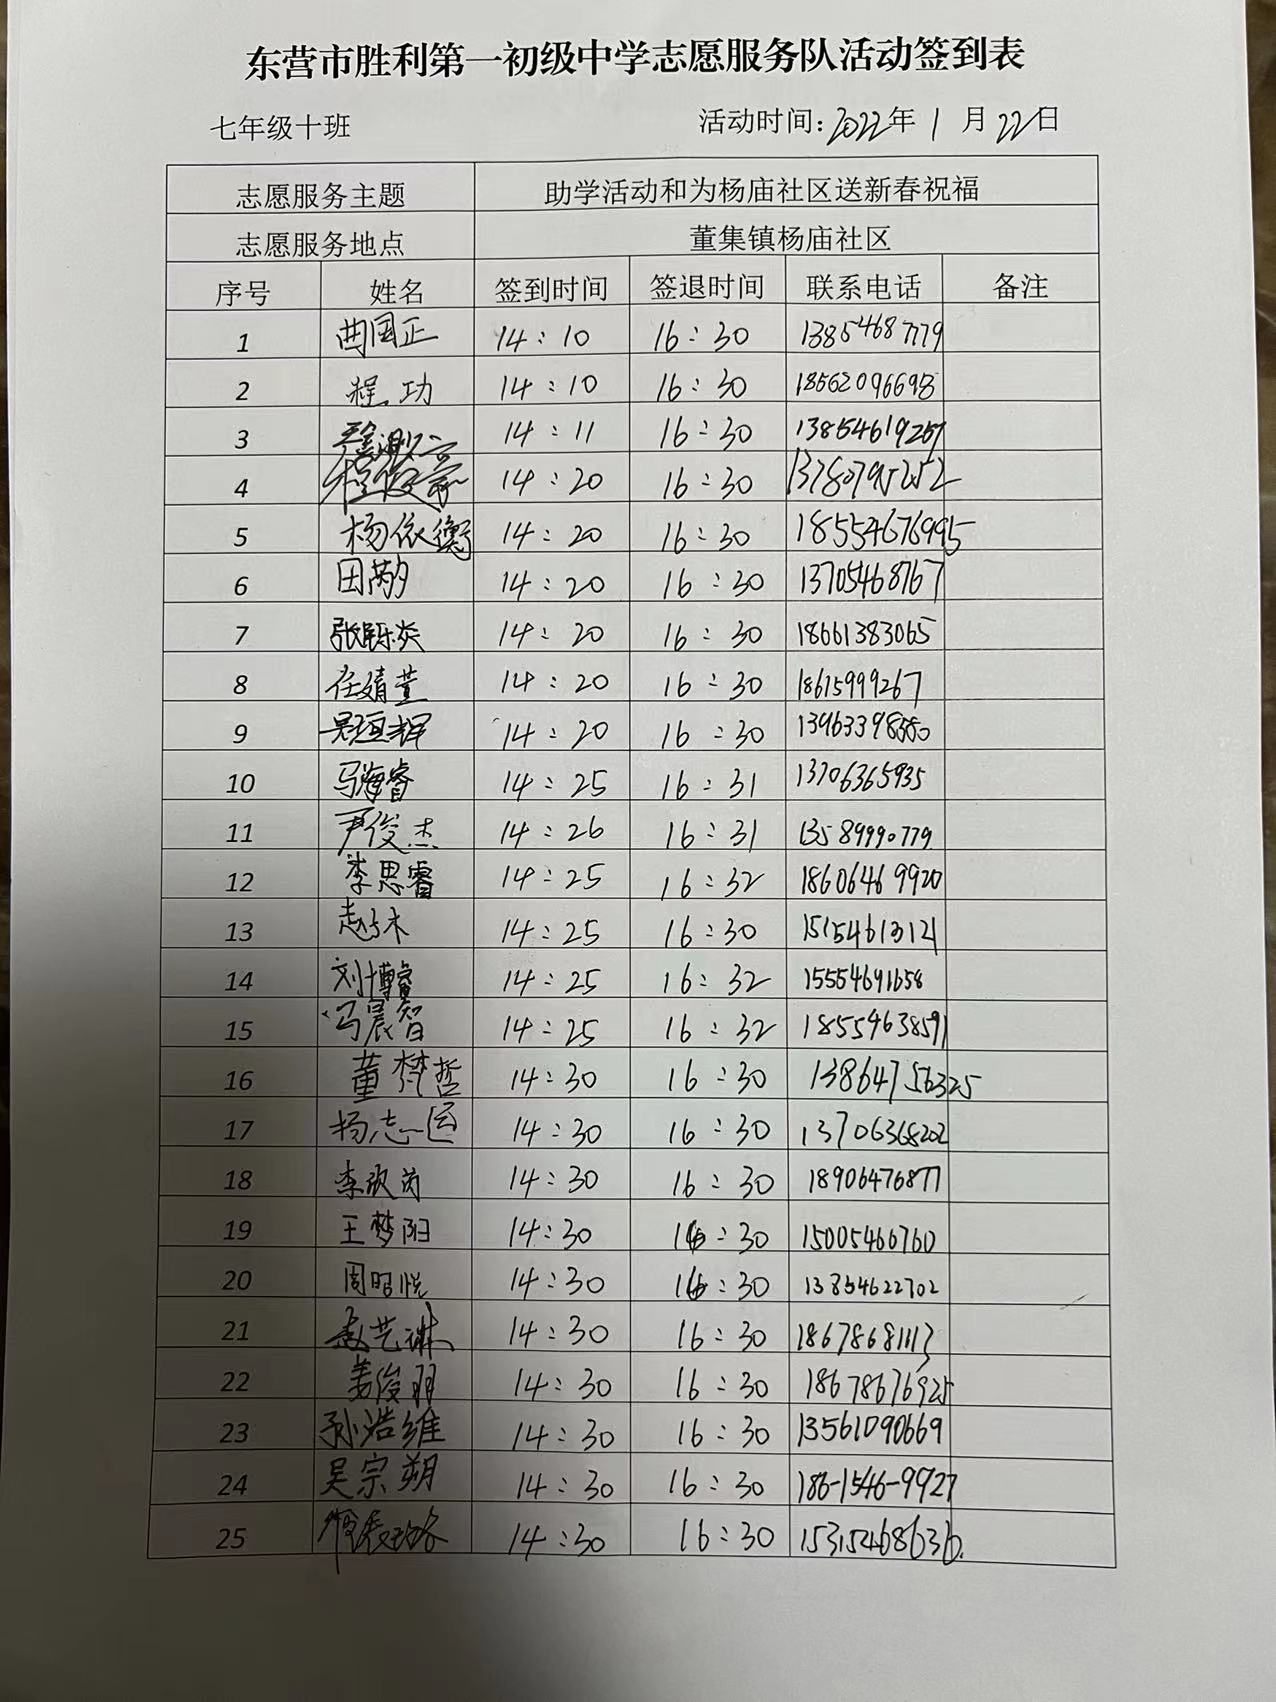 东营市胜利第一初级中学志愿服务队活动签到表
七年级十班 活动时间:2022年1月22日
志愿服务主题 助学活动和为杨庙社区送新春祝福
志愿服务地点 董集镇杨庙社区
序号 姓名 签到时间 签退时间 联系电话 备注
1 曲国正 14:10 16:30 13854687779
2 程功 14:10 16:30 18562096698
3 14:11 16:30 13854619257
4 14:20 16:30 13780795252
5 杨依衡 14:20 16:30 18554676995
6 田 14:20 16:30 13705468767
7 张 14:20 16:30 18661383065
8 任婧萱 14:20 16:30 18615999267
9 14:20 16:30
10 马海睿 14:25 16:31 13706365935
11 尹俊杰 14:26 16:31 13589990779
12 李思睿 14:25 16:32 18606469920
13 14:25 16:30 15154613121
14 刘博睿 14:25 16:32 15554691658
15 冯晨智 14:25 16:32 18554638591
16 董梵哲 14:30 16:30 13864756325
17 杨志运 14:30 16:30 13706368202
18 李欣芮 14:30 16:30 18906476877
19 王梦阳 14:30 16:30 15005466760
20 周昭悦 14:30 16:30 13854622702
21 赵艺琳 14:30 16:30 18678681113
22 姜俊羽 14:30 16:30 18678676925
23 孙浩维 14:30 16:30 13561090669
24 吴宗朔 14:30 16:30 186-1546-9927
25 14:30 16:30 15315468636